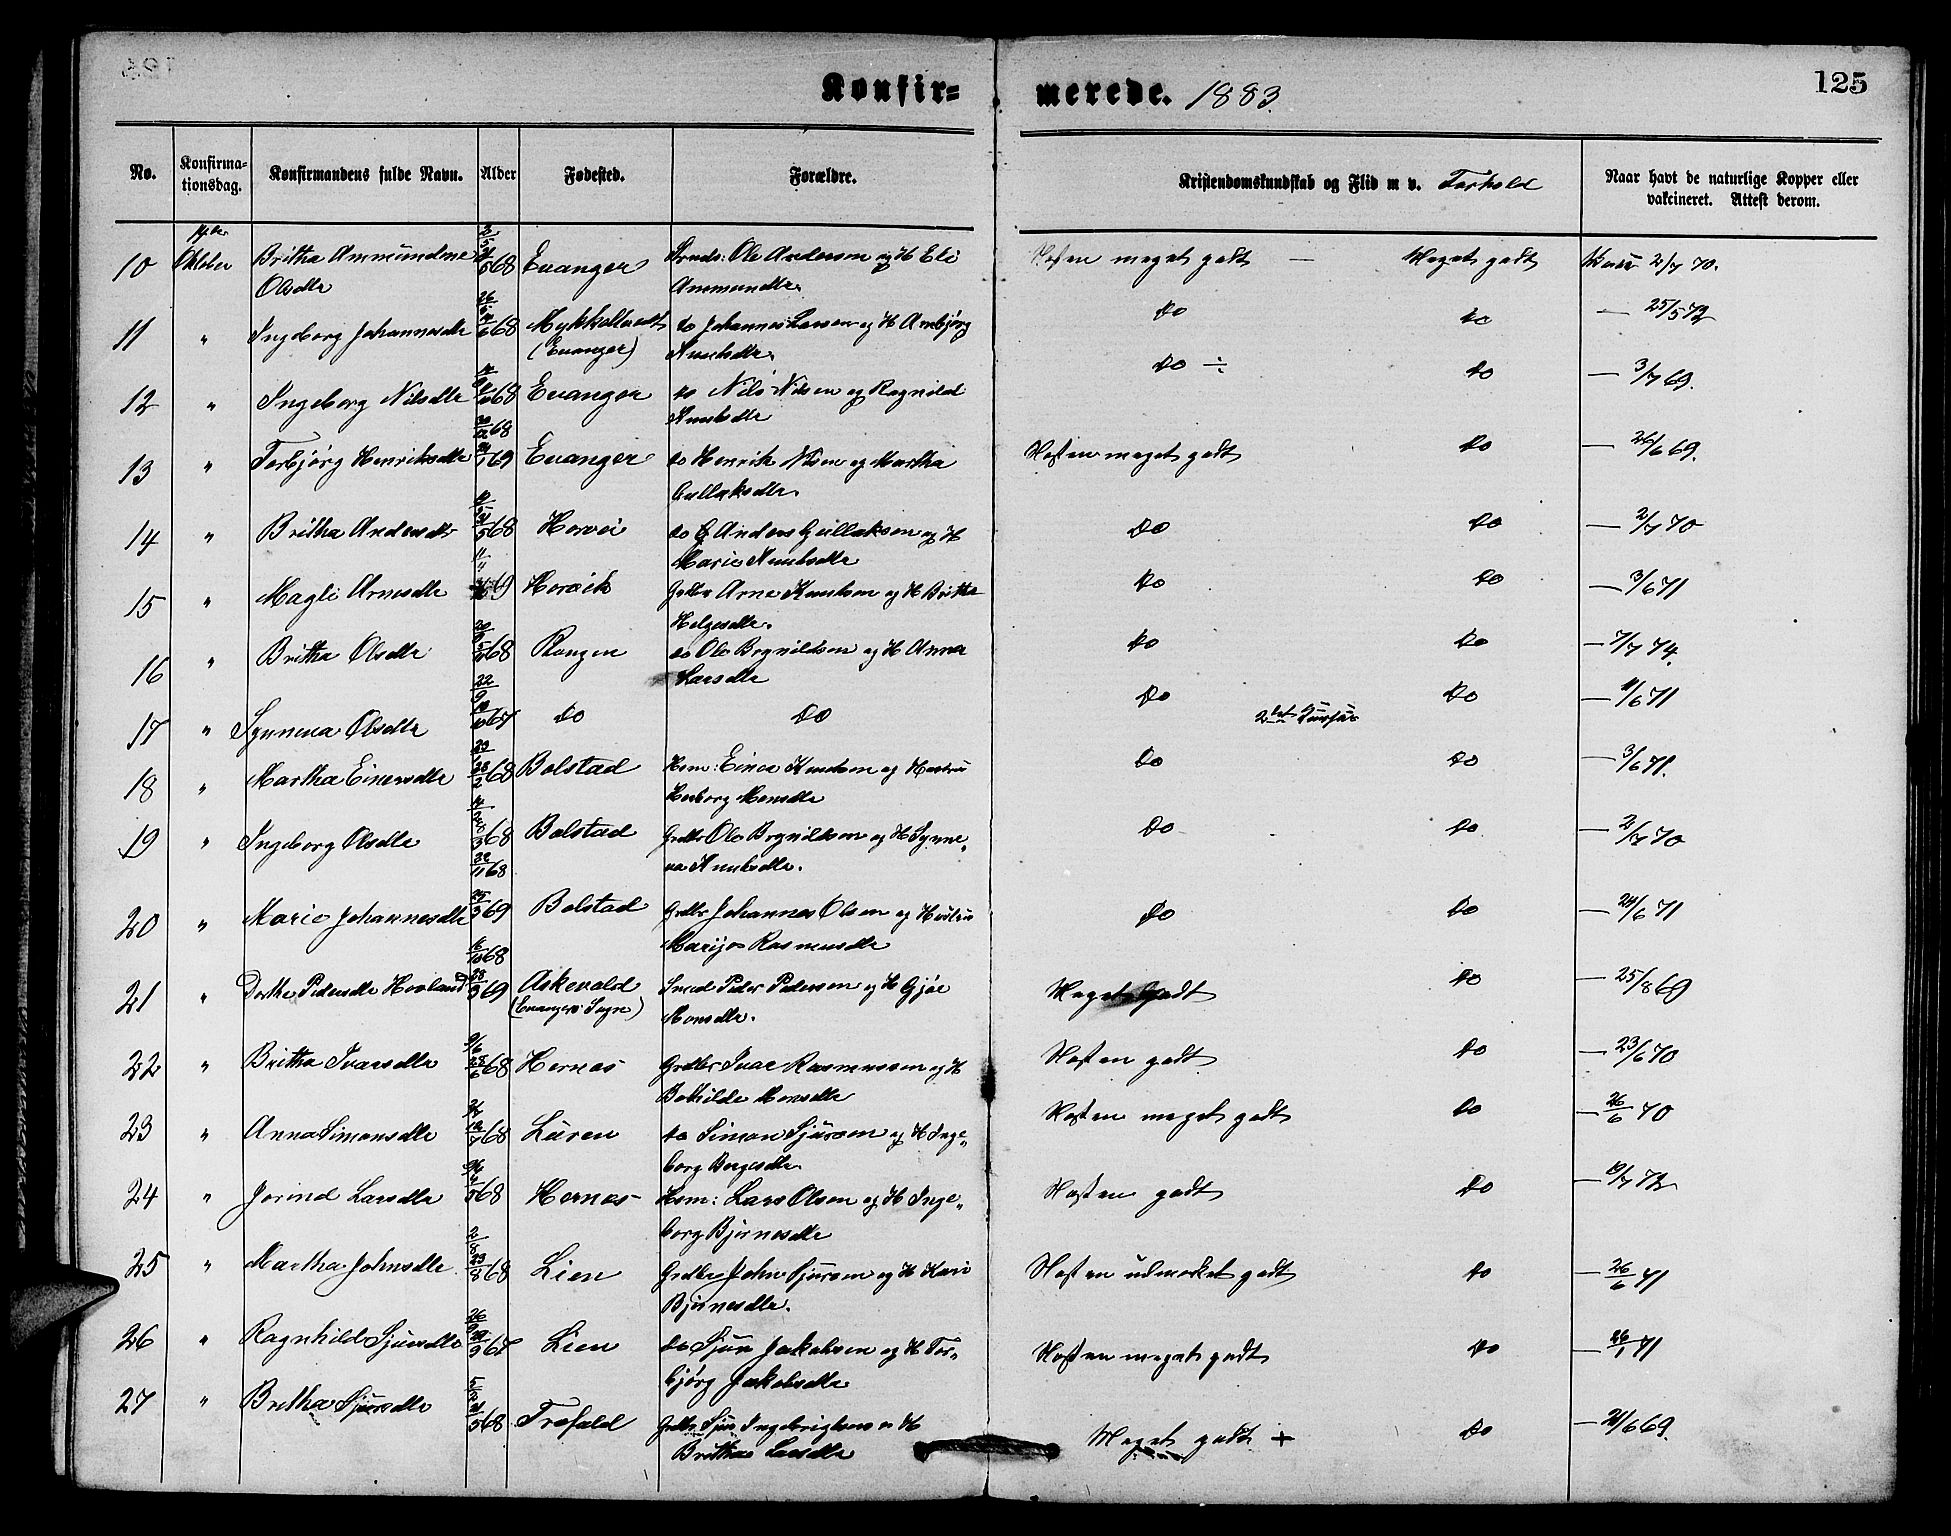 Konfirmerede. 1883.
125
No.
Konfirmationsdag.
Konfirmandens fulde Navn.
Alder
Fødested.
Forældre.
Kristendomskundskab og Flid m v. Forhold
Naar havt de naturlige Kopper eller vakcineret. Attest derom.
10 Oktober Britha Ammundine Olsdtr 68 Evanger Ole Andersen og H Eli Ammundtr. Næsten meget godt – Meget godt 2/7 70.
11 " Ingeborg Johannesdtr 68 (Evanger) do Johannes Larsen og H Anbjørg Knutsdtr. do do — 25/5 72
12 " Ingeborg Nilsdtr 68 Evanger do Nils Nilsen og Ragnild Knutsdtr do ÷ do — 3/7 69.
13 " Torbjørg Henriksdtr 68 69 Evanger do Henrik Nilsen og Martha Gullaksdtr. Næsten meget godt do — 26/6 69.
14 " Britha Andersdtr 68 Horvei do Anders Gullaksen og H Marie Knutsdtr do do — 2/7 70
15 " Magli Arnesdtr 69 Horvik Arne Knutsen og H Britha Helgesdtr. do do — 3/6 71
16 " Britha Olsdtr 68 Rongen do Ole Brynildsen og H Anna Larsdtr do do — 7/7 74.
17 " Synneva Olsdtr 67 do do do 2det do — 11/6 71
18 " Martha Einersdtr 68 Bolstad Hsm: Einer Knutsen og Hustru Herborg Monsdtr do do — 3/6 71.
19 " Ingeborg Olsdtr 68 Bolstad Grdbr Ole Brynildsen og H Synneva Knutsdtr. do do — 2/7 70
20 " Marie Johannesdtr 68 69 Bolstad Grdbr Johannes Olsen og Hustru Rasmusdtr do do — 24/6 71
21 " Dorthe Pedersdtr Hovland 68 69 (Evanger Sogn) Peder Pedersen og H Gjøe Monsdtr. Meget Godt do — 25/8 69
22 " Britha Ivarsdtr 68 Hernes Grdbr Ivar Rasmussen og H Bothilde Monsdtr Næsten godt do — 23/6 70
23 " Anna Simonsdtr 68 Luren do Simon Sjursen og H Ingeborg Børgesdtr. Næsten meget godt do — 26/6 70
24 " Jorind Larsdtr 68 Hernes Hsm: Lars Olsen og H Ingeborg Bjørnesdtr Næsten godt do — 10/7 72
25 " Martha Johnsdtr 68 Lien Grdbr John Sjursen og H Kari Bjørnesdtr. Næsten udmerket godt do — 26/6 71
26 " Ragnhild Sjursdtr 67 Lien do Sjur Jakobsen og H Torbjørg Jakobsdtr Næsten meget godt do — 26/1 71
27 " Britha Sjursdtr 68 Trefald Grdbr Sjur Ingebrigtsen og H Britha Larsdtr Meget godt + do — 21/6 69.